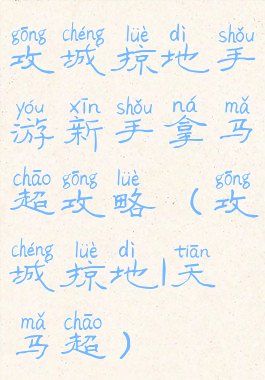 gōng chéng lüè dì shǒu
攻城掠地手
yóu xīn shǒu ná mǎ
游新手拿马
chāo gōng lüè gōng
超攻略（攻
chéng lüè dì tiān
城掠地|天
mǎ chāo
马超）